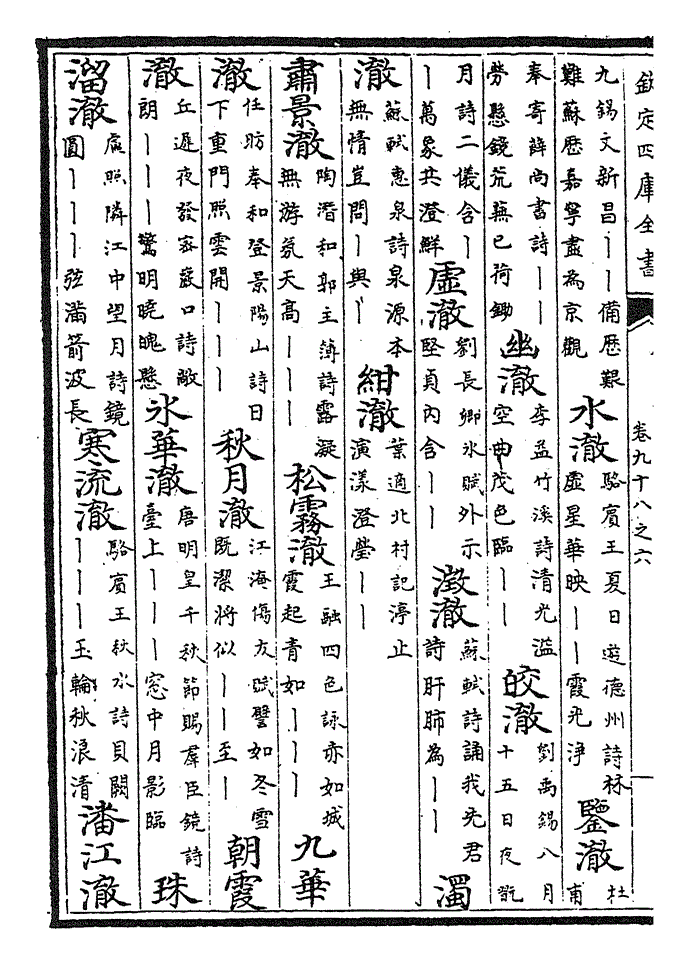 欽定四庫全書
卷九十八之六
九錫文新昌丨丨備歷艱難蘇歷嘉寧盡為京觀 水澈 駱賓王夏日遊德州詩林虛星華映丨丨霞光淨 鑒澈 杜甫
奉寄薛尚書詩丨丨勞懸鏡荒蕪已荷鋤 幽澈 李益竹溪詩清光溢空曲茂色臨丨丨 皎澈 劉禹錫八月十五日夜翫
月詩二儀含丨丨萬象共澄鮮 虛澈 劉長卿氷賦外示堅貞內含丨丨 澂澈 蘇軾詩誦我先君詩肝肺為丨丨 濁
澈 蘇軾惠泉詩泉源本無情豈問丨與丨 紺澈 葉適北村記渟止演漾澄瑩丨丨
肅景澈 陶潛和郭主薄詩露凝無游氛天高丨丨丨 松霧澈 王融四色詠亦如城霞起青如丨丨丨 九華
澈 任昉奉和登景陽山詩日下重門照雲開丨丨丨 秋月澈 江海傷友賦譬如冬雪既潔將似丨丨至丨 朝霞
澈 丘遲夜發密巖口詩敞朗丨丨丨驚明曉魄懸 氷華澈 唐明皇千秋節賜羣臣鏡詩臺上丨丨丨窓中月影臨 珠
溜澈 盧照隣江中望月詩鏡圓丨丨丨弦滿箭波長 寒流澈 駱賓王秋水詩貝闕丨丨丨玉輪秋浪清 潘江澈